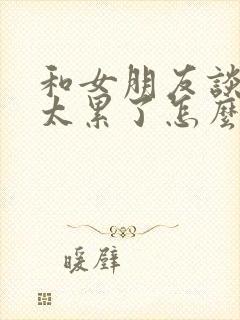 和女朋友談
太累了怎麼
暖壁